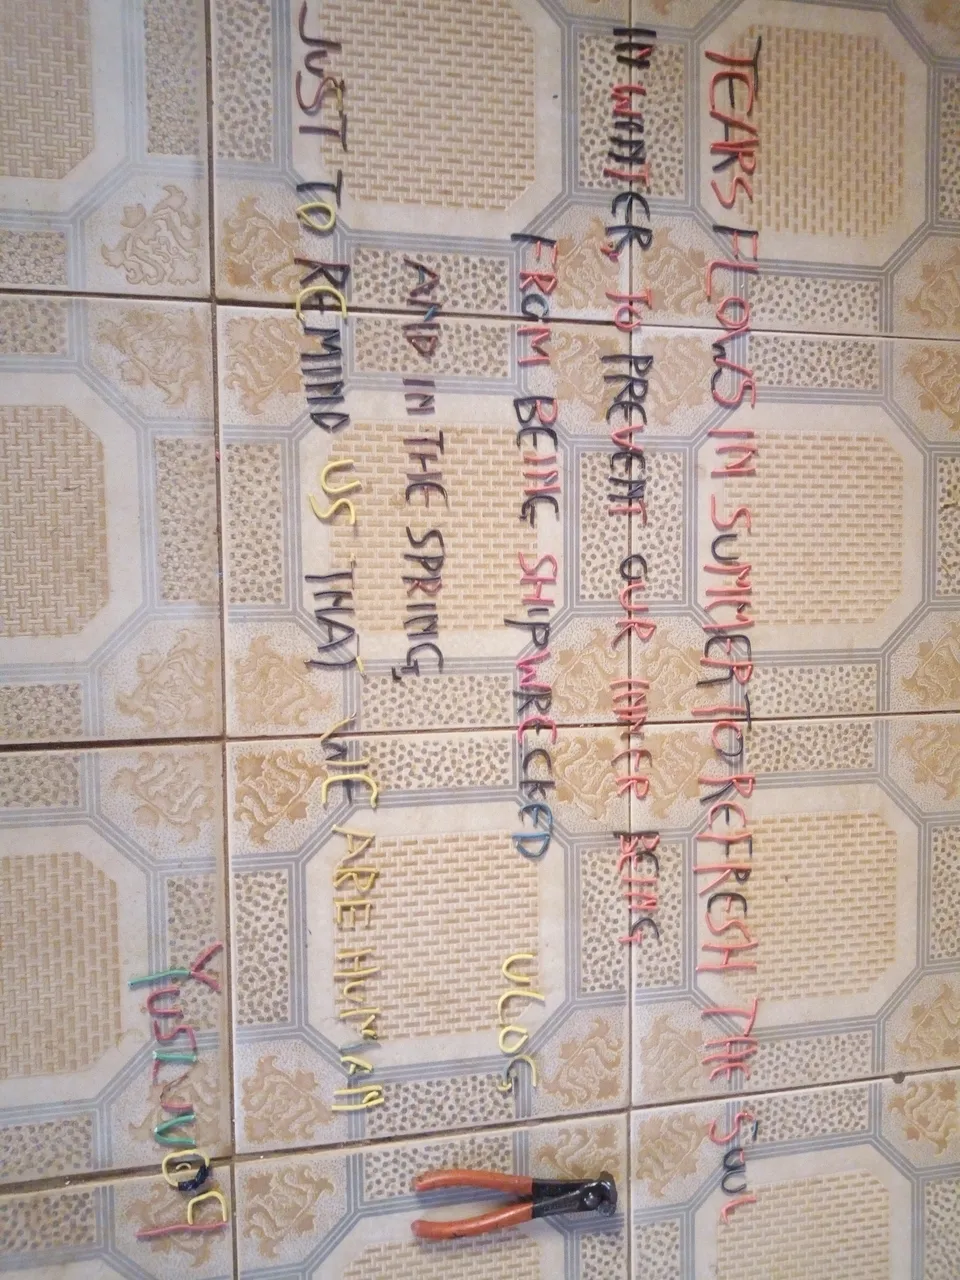 TEARS FLOWS IN SUMMER TO REFRESH THE SOUL
IN WINTER, TO PREVENT OUR INNER BEING
FROM BEING SHIPWRECKED ULOG
AND IN THE SPRING,
JUST TO REMIND US THAT WE ARE HUMAN